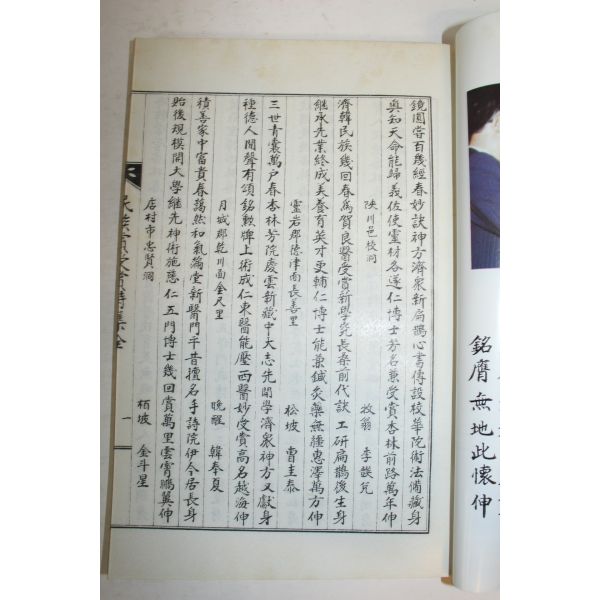 鏡圓當百幾經春妙訣神方濟衆新扁鵲心書傳設校華陀術法備藏身
與知天命能歸義佐使靈材各遂仁博士芳名兼受賞杏林前路萬年伸
陜川邑校洞
牧翁 李
濟韓民族幾回春爲賀良醫受賞新學究長桑前代訣工研扁鵲後生身
繼承先業終成美養育英才更輔仁博士能兼鍼灸藥無疆惠澤萬方伸
靈岩郡德津面長善里
松坡 曺圭泰
三世青囊萬戶春杏林芳院慶雲新藏中大志先聞學濟衆神方又獻身
種德人間聲有頌銘勲牌上術成仁東醫能壓西醫妙受賞高名越海伸
月城郡乾川面金尺里
晩醒 韓奉夏
積善家中富貴春藹然和氣滿堂新醫門平昔擅名手詩院伊今居長身
貽後規模開大學繼先神術施慈仁五門博士幾回賞萬里雲霄鵬翼伸
店村市忠賢洞
栢坡 金斗星
集全
一
銘膺無地此懷伸